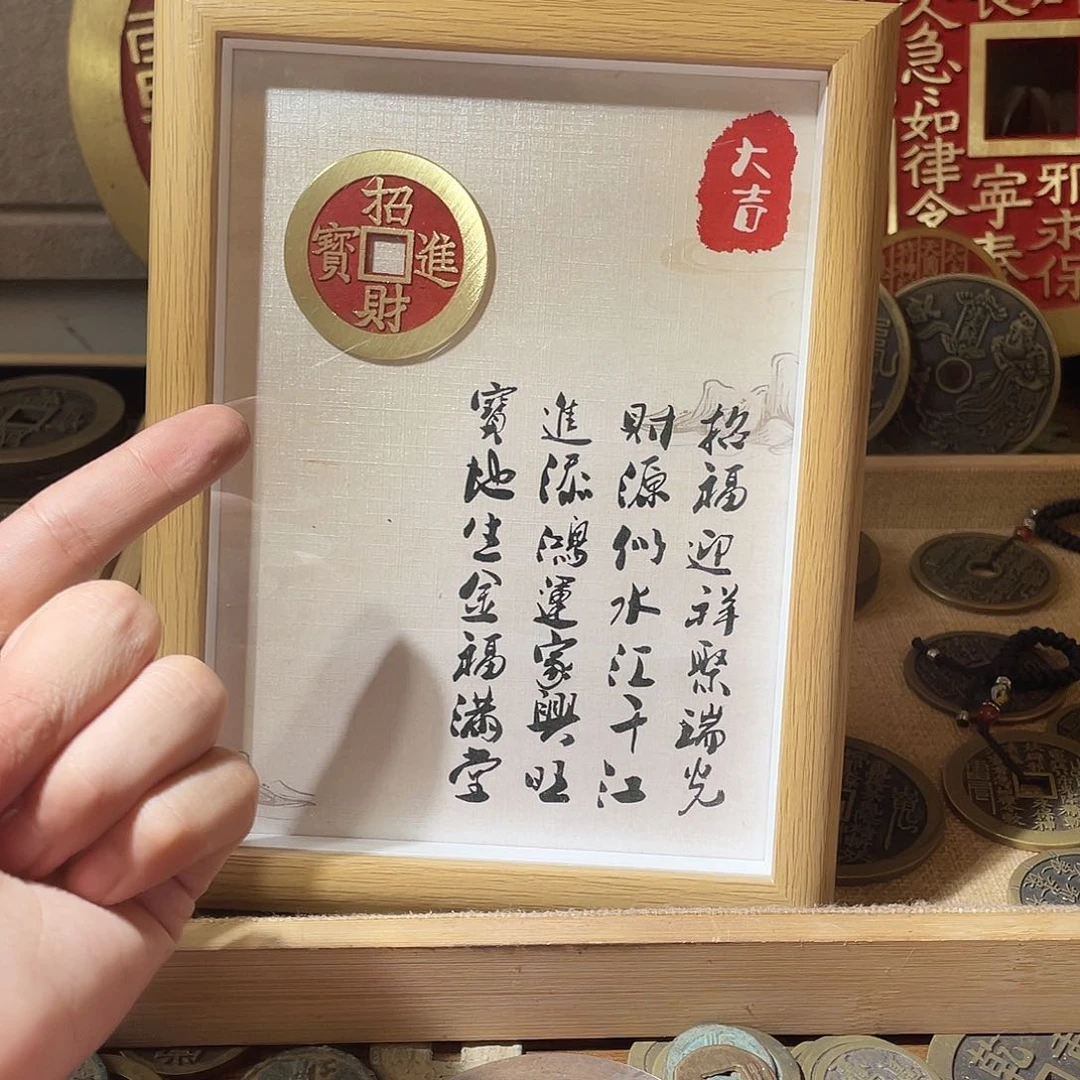 招財進寶
大吉
招福迎祥聚瑞光
財源似水汇千江
進添鴻運家興旺
寶地生金福滿堂
急如律令
邪求保
寧